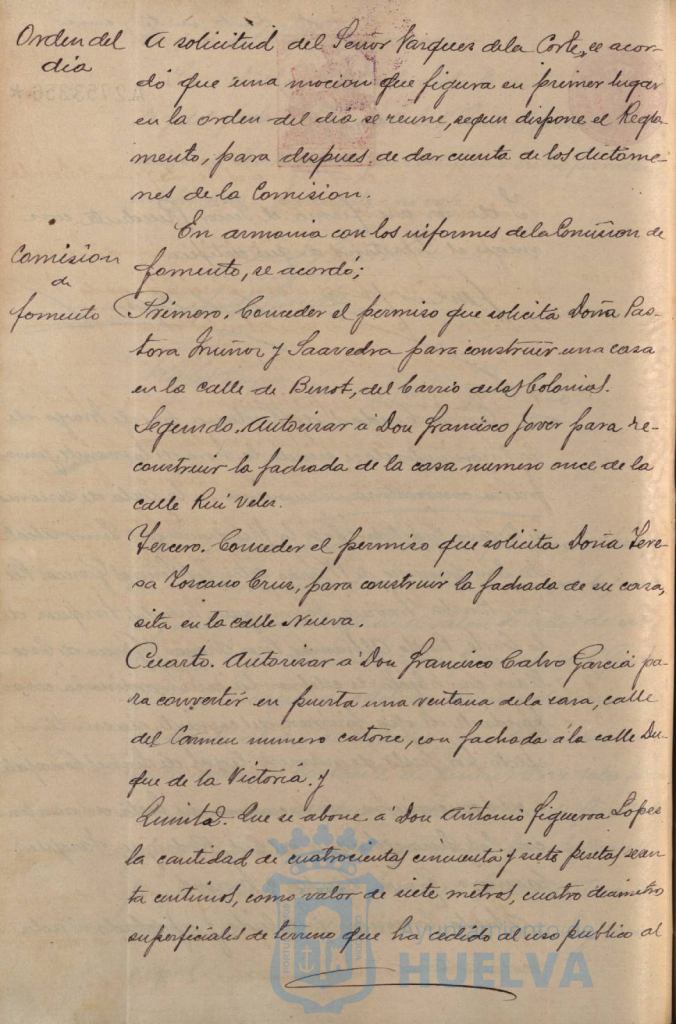 Orden del
día
A solicitud del Señor Vazques de la Corte, se acor-
dó que una mocion que figura en primer lugar
en la orden del dia se reune, segun dispone el Regla-
mento, para despues de dar cuenta de los dictame-
nes de la Comision.
Comision
de
fomento
En armonia con los informes de la Comision de
fomento, se acordó;
Primero. Conceder el permiso que solicita Doña Pas-
tora Muñoz y Saavedra para construir una casa
en la calle de Benot, del barrio de las Colonias.
Segundo. Autorizar á Don Francisco Jover para re-
construir la fachada de la casa numero once de la
calle Rui Velez.
Tercero. Conceder el permiso que solicita Doña Tere-
sa Toscano Cruz, para construir la fachada de su casa,
sita en la calle Nueva.
Cuarto. Autorizar á Don Francisco Calvo Garcia pa-
ra convertir en puerta una ventana de la casa, calle
del Carmen numero catorce, con fachada á la calle Du-
que de la Victoria. y
Quinto. Que se abone á Don Antonio Figueroa Lopez
la cantidad de cuatrocientas cincuenta y siete pesetas sesen-
ta centimos, como valor de siete metros, cuatro decimetros
superficiales de terreno que ha cedido al uso publico al
Ayuntamiento de
HUELVA